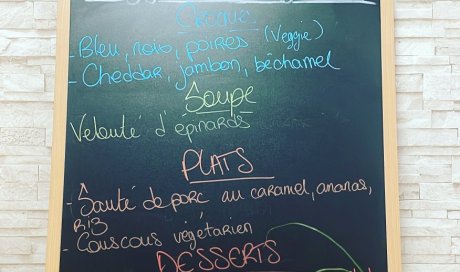 CROQUE
- Bleu, noix, poires (Veggie)
- Cheddar, jambon, béchamel
Soupe
Velouté d'épinards
PLATS
- Sauté de porc au caramel, ananas,
RIZ
- Couscous végétarien
DESSERTS